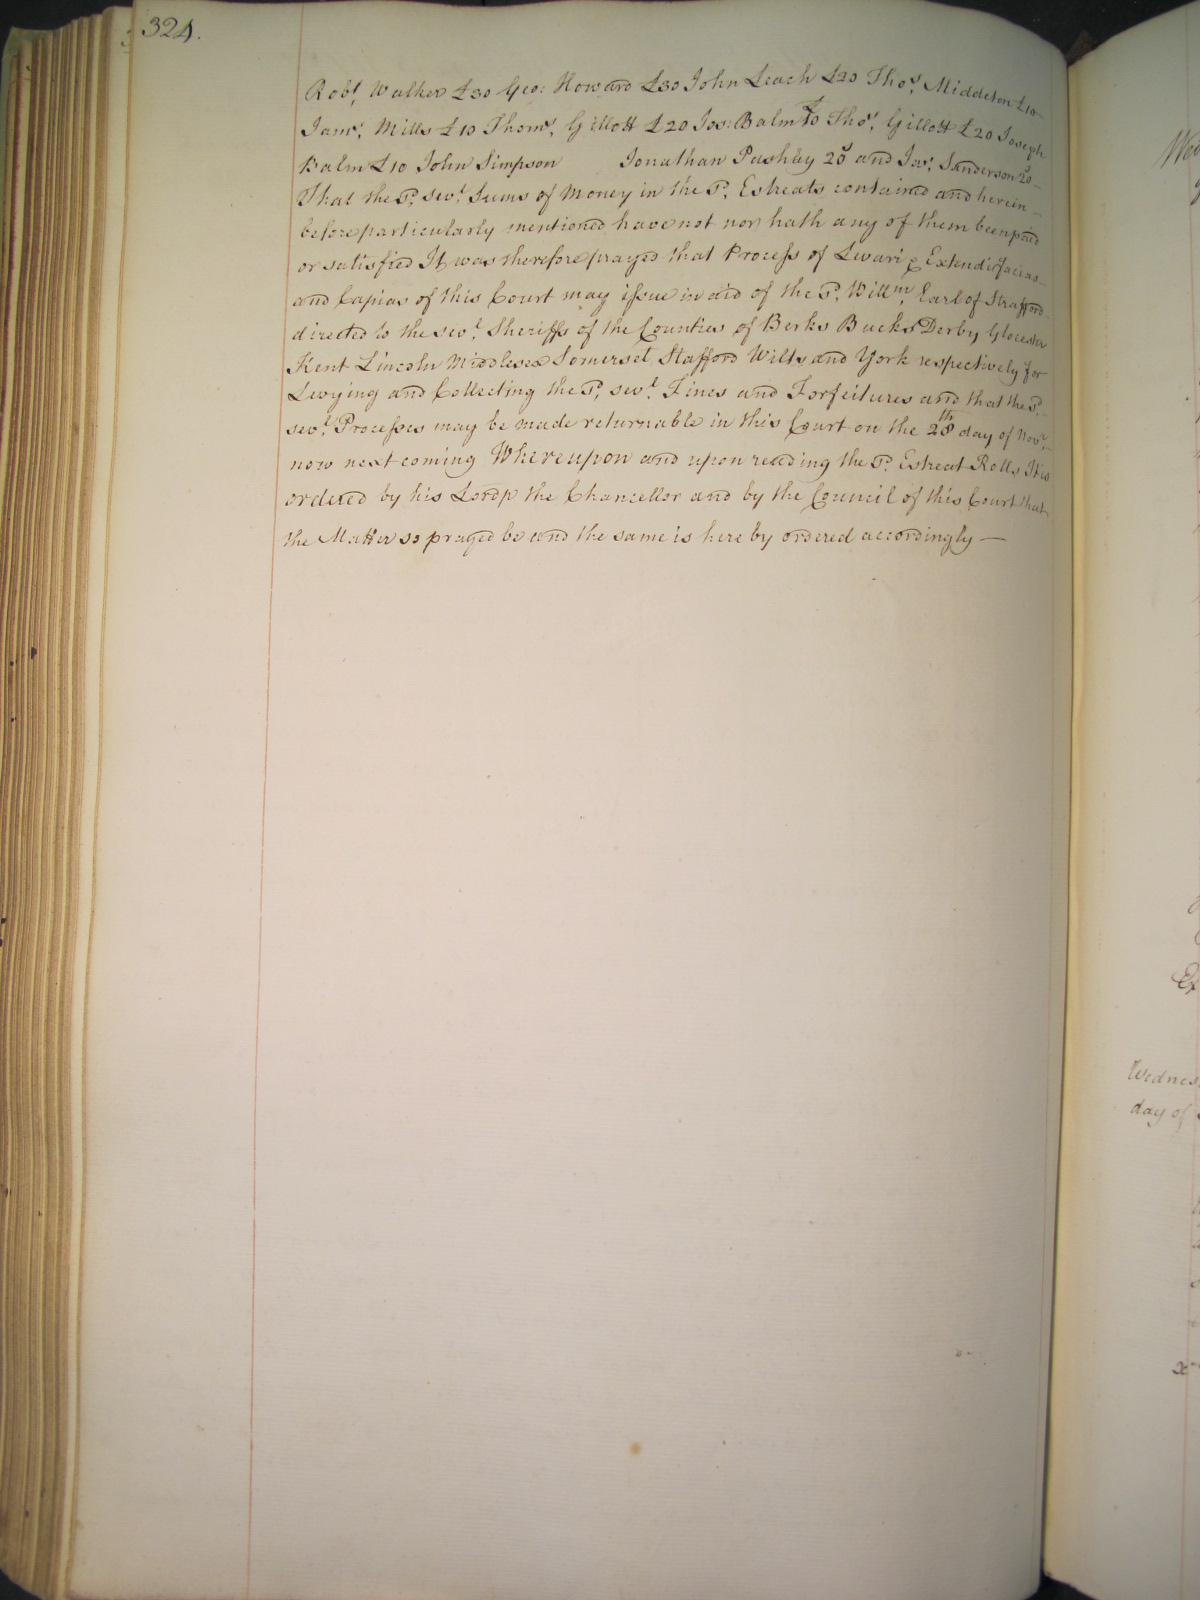 324.
Robt. Walker £30 Geo: Howard £30 John Leach £20 Thos. Middleton £10
Jams. Mills £10 Thoms. Gillott £20 Jos: Balm £10 Thos. Gillott £20 Joseph
Balm £10 John Simpson Jonathan Pashley 20s and Jas. Sanderson 20s
That the sd. sevl. Sums of Money in the sd. Estreats contained and herein
before particularly mentioned have not nor hath any of them been paid
or satisfied It was therefore prayed that Process of Levari & Extendi facias
and Capias of this Court may issue in aid of the sd. Willm. Earl of Strafford
directed to the sevl. Sheriffs of the Counties of Berks Bucks Derby Glocester
Kent Lincoln Middlesex Somerset Stafford Wilts and York respectively for
Levying and Collecting the sd. sevl. Fines and Forfeitures and that the sd.
sevl. Processes may be made returnable in this Court on the 28th day of Novr.
now next coming Whereupon and upon reading the sd. Estreat Rolls It is
ordered by his Lordp the Chancellor and by the Council of this Court that
the Matter so prayed be and the same is hereby ordered accordingly —
Wednes
day of